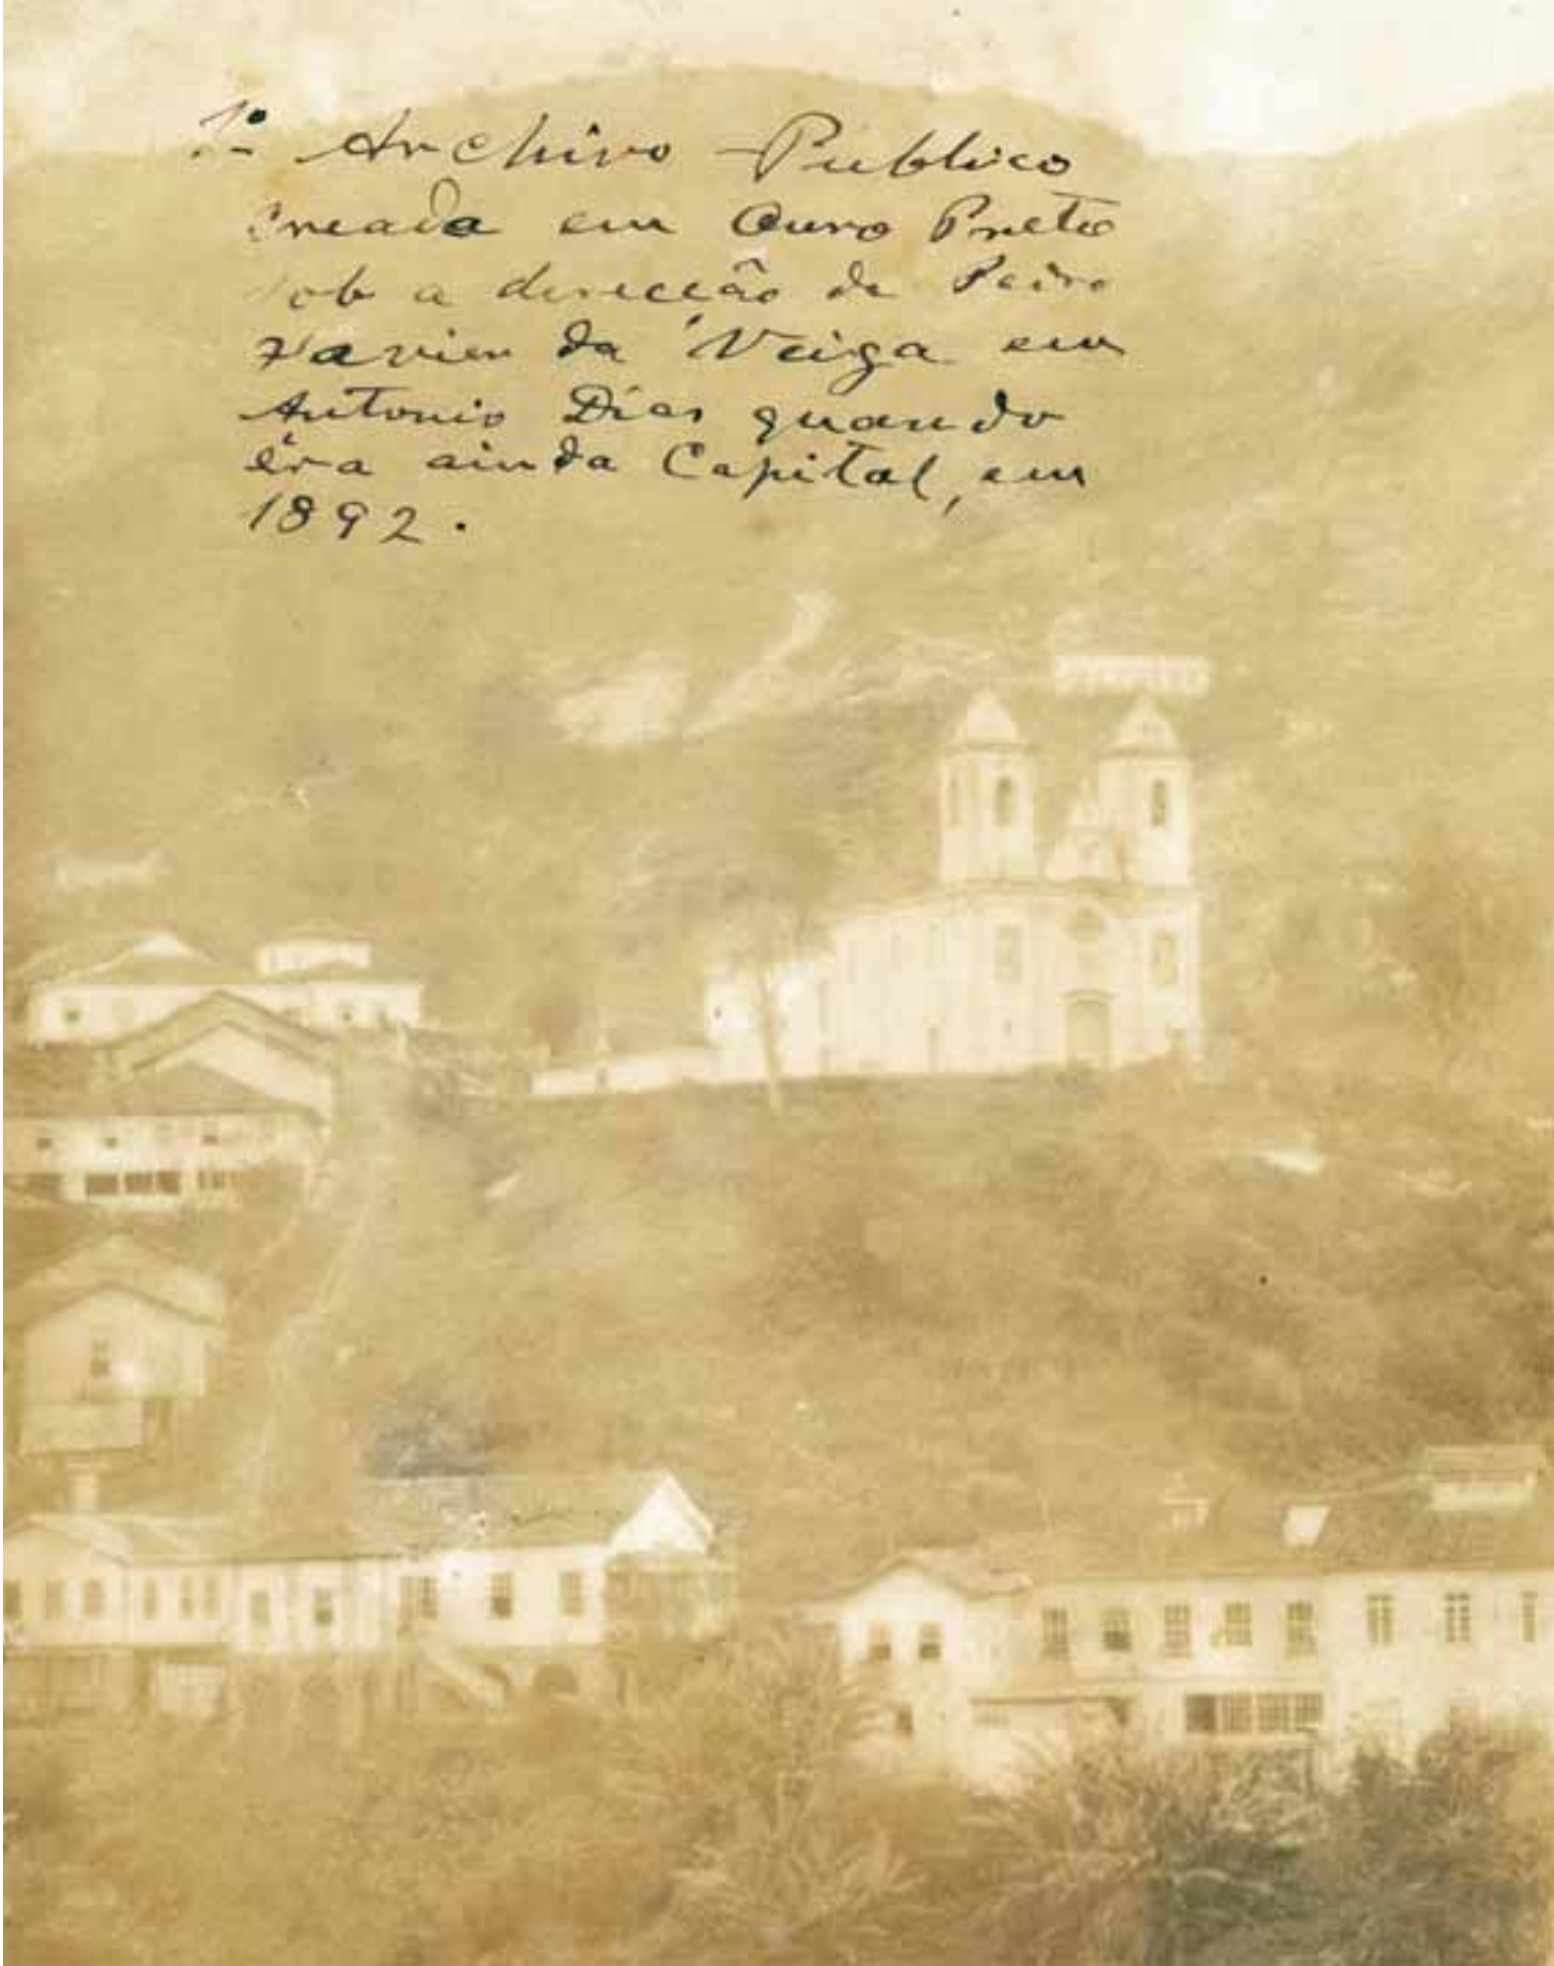 1º Archivo Publico
creada em Ouro Preto
sob a direcção de Pedro
Xavier da Veiga em
Antonio Dias quando
éra ainda Capital, em
1892.